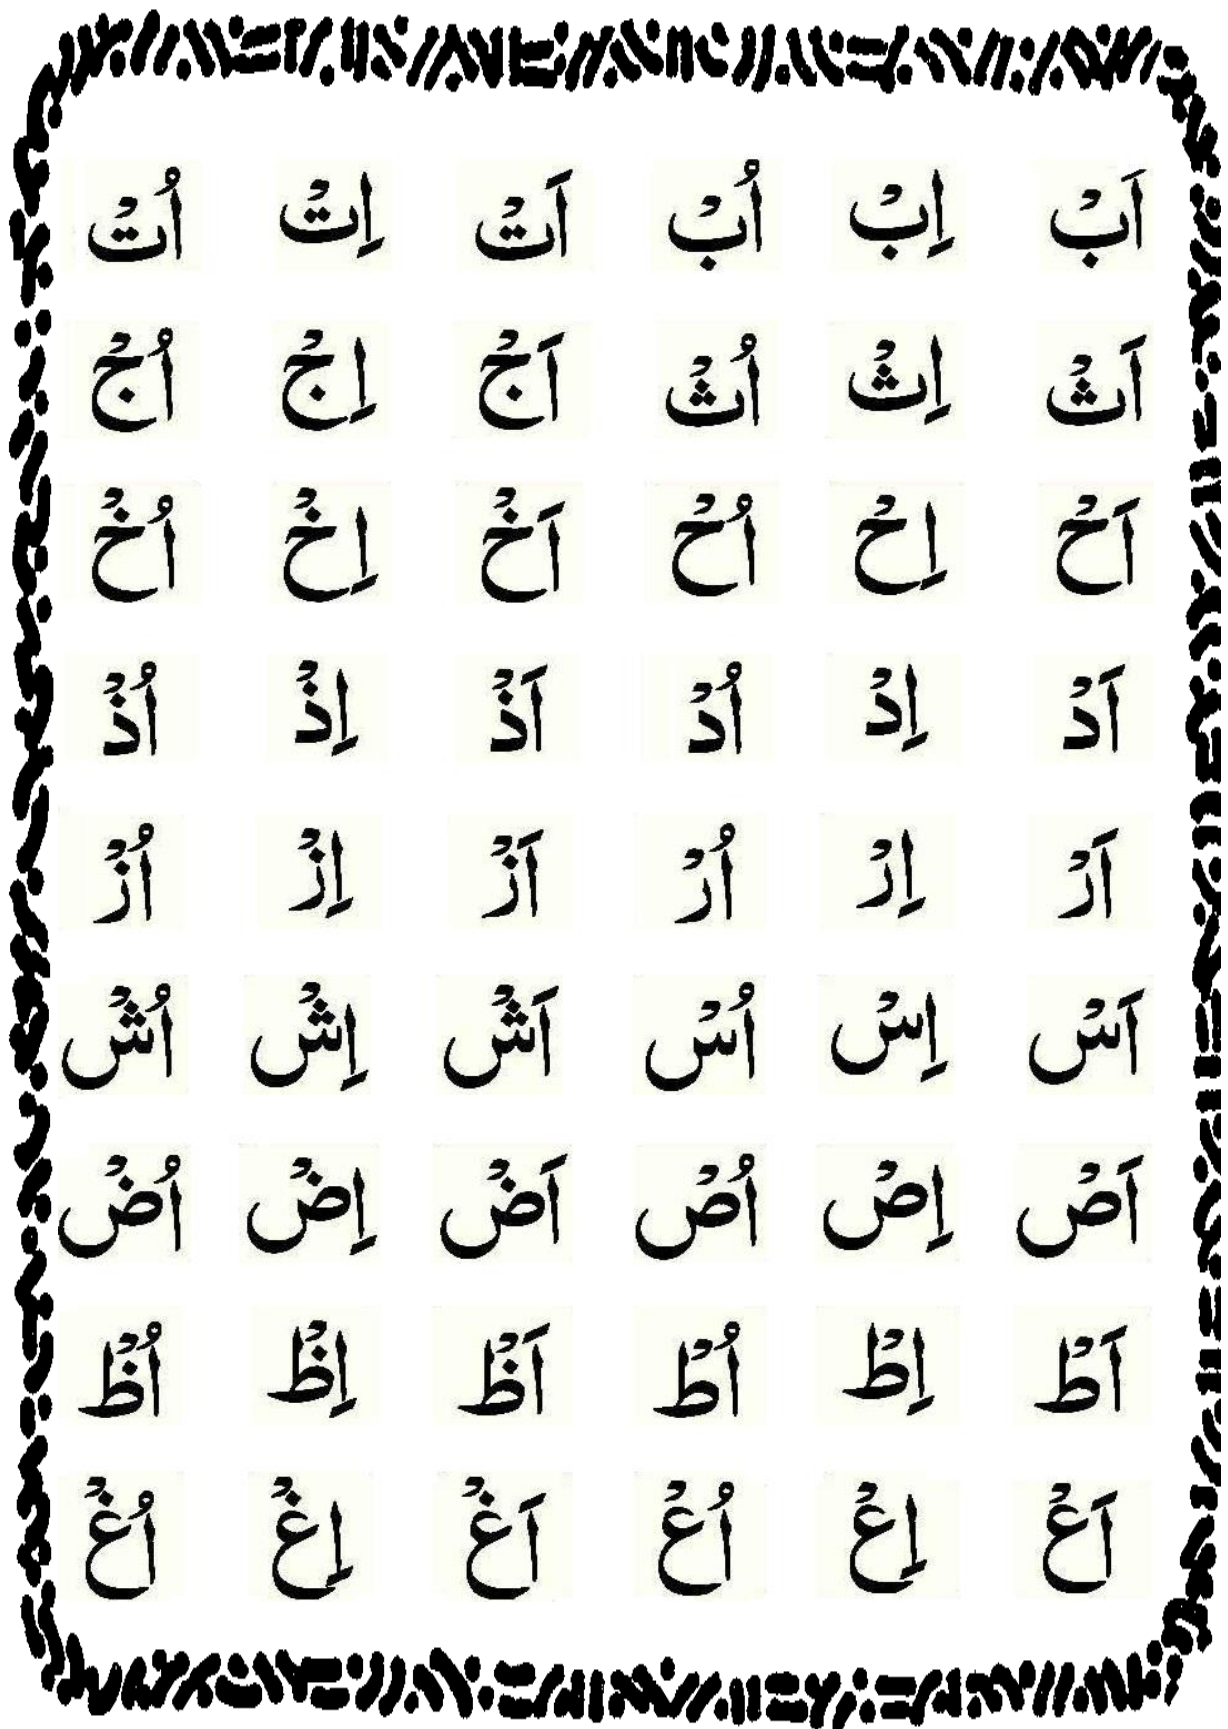 اَبْ اِبْ اُبْ اَتْ اِتْ اُتْ
اَثْ اِثْ اُثْ اَجْ اِجْ اُجْ
اَحْ اِحْ اُحْ اَخْ اِخْ اُخْ
اَدْ اِدْ اُدْ اَذْ اِذْ اُذْ
اَرْ اِرْ اُرْ اَزْ اِزْ اُزْ
اَسْ اِسْ اُسْ اَشْ اِشْ اُشْ
اَصْ اِصْ اُصْ اَضْ اِضْ اُضْ
اَطْ اِطْ اُطْ اَظْ اِظْ اُظْ
اَعْ اِعْ اُعْ اَغْ اِغْ اُغْ